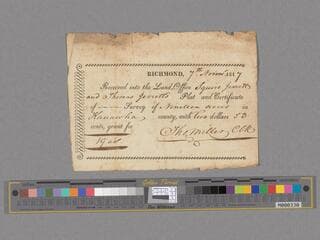 RICHMOND, 7th Novem 1817
Received into the Land Office Squire Jarrett
and Thomas Jarrett's Plat and Certificate
of Survey of Nineteen acres in
Kanawha county, with two dollars 53
cents, grant fee
Tho Miller, Clk
M000330